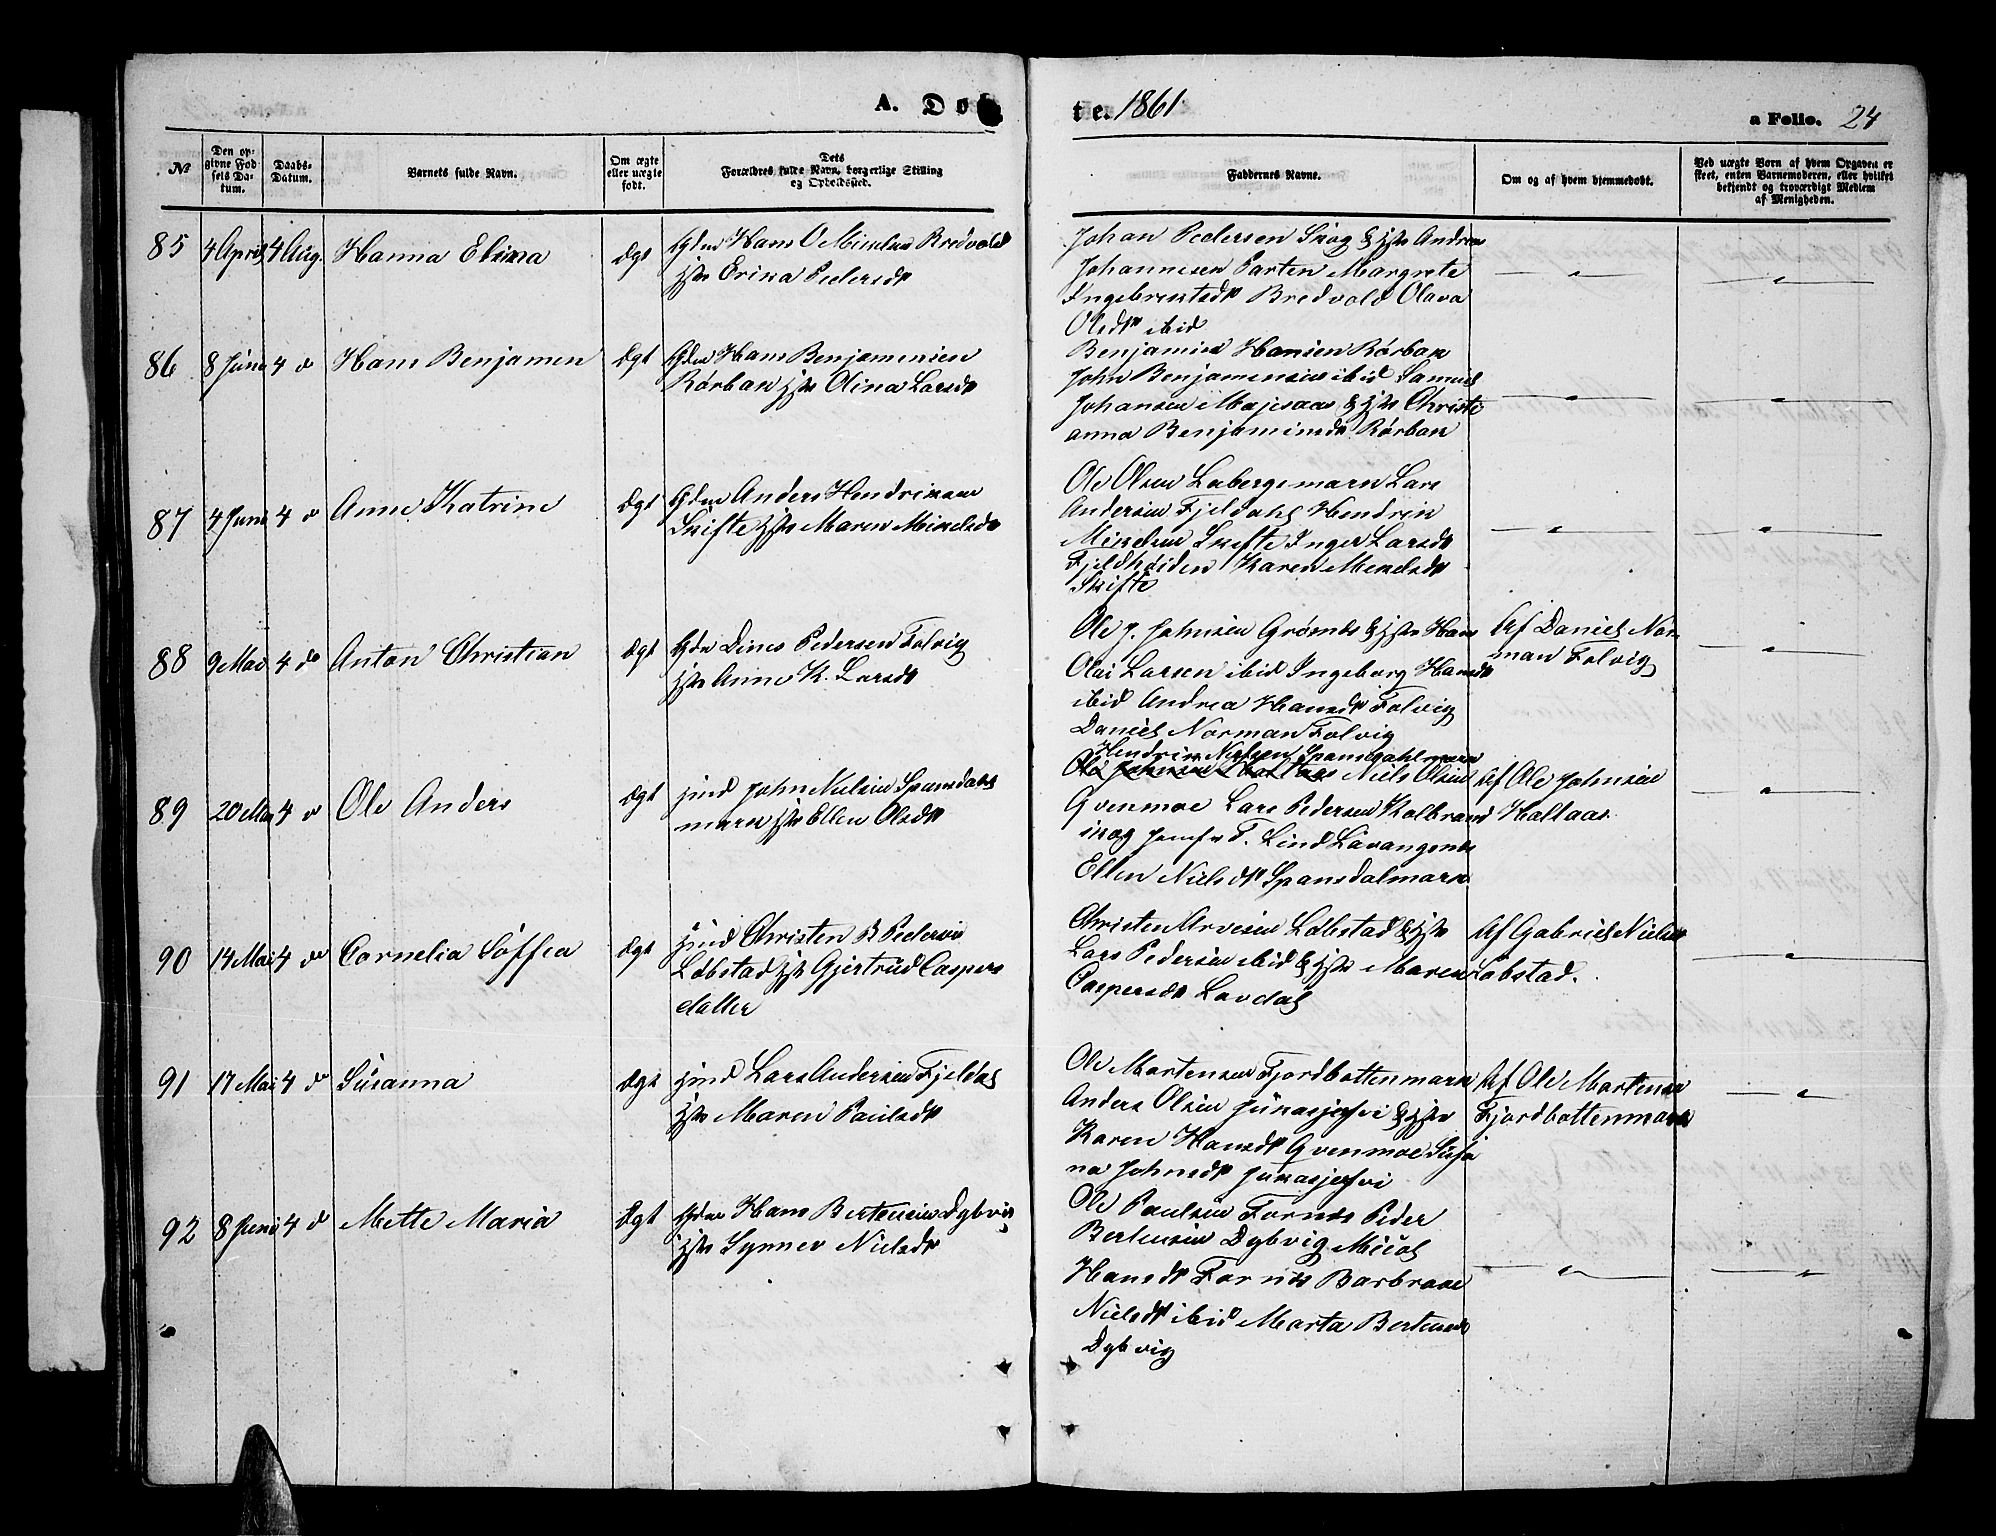 A. Døb
te. 1861.
a Folio. 24
№
Den opgivne Fødsels Datum.
Daabs-Datum.
Barnets fulde Navn.
Om ægte eller uægte født.
Dets Forældres fulde Navn, borgerlige Stilling og Opholdssted.
Faddernes Navne.
Om og af hvem hjemmedøbt.
Ved uægte Børn af hvem Opgaven er skeet, enten Barnemoderen, eller hvilket bekjendt og troværdigt Medlem af Menigheden.
85 4 April 4 Aug Hanna Elina Ægt Gdm Hans O Mikelsen Bredvold
Hst Erika Pedersdt
Johan Pedersen Skog & Hst Andreas
Johannesen Parten Margrete
Ingebrektsdt Bredvold Olava
Olsdt ibid
86 8 Juni 4 do Hans Benjamen Ægt Gdm Hans Benjamensen
Rørbak Hst Olina Larsdt
Benjamin Hansen Rørbak
John Benjamensen ibid Samuel
Johansen & Hst Christi
anna Benjaminsdt Rørbak
87 4 Juni 4 do Anne Katrine Ægt Gdm Anders Hendriksen
Skifte Hst Maren Mikelsdt
Ole Olsen Labergsmark Lars
Andersen Fjeldahl Hendrik
Mikelsen Skifte Inger Larsdt
Fjeldkleiden Karen Mikelsdt
Skifte
88 9 Mai 4 do Anton Christian Ægt Gdm Dines Pedersen Folvig
Hst Anne K. Larsdt
Ole J. Johnsen Grønnes & Hst Hans
Olai Larsen ibid Ingeborg Hansdt
ibid Andrea Hansdt Folvig
Daniel Norman Folvig
Af Daniel Nor
man Folvig
89 20 Mai 4 do Ole Anders Ægt Ind John Nielsen Spansdals
mark Hst Ellen Olsdt
Hendrik Nielsen Spansdahlmark
Ole Johnsen Niels Olsen
Qvenmoe Lars Pedersen Kolbrand
skog Jomfr T. Lind Lavangsnes
Ellen Nielsdt Spansdalmark
Af Ole Johnsen
Haltaas
90 14 Mai 4 do Cornelia Søffea Ægt Ind Christen P Pedersen
Løbstad Hst Gjertrud Caspers
datter
Christen Arvesen Løbstad & Hst
Lars Pedersen ibid & Hst Maren
Caspersdt Lavdal
Af Gabriel Nielsen
Løbstad.
91 17 Mai 4 do Susanna Ægt Ind Lars Andersen Fjeldal
Hst Maren Paulsdt
Ole Mortensen Fjordbottenmark
Anders Olsen & Hst
Karen Hansdt Qvenmoe Susa
na Johnsdt
Af Ole Mortensen
Fjordbottenmark
92 8 Juni 4 do Mette Maria Ægt Gdm Hans Bertensen Dybvig
Hst Synnev Nielsdt
Ole Paulsen Fornes Peder
Bertensen Dybvig
Hansdt Fornes Barbroae
Nielsdt ibid Marta Bertensdt
Dybvig